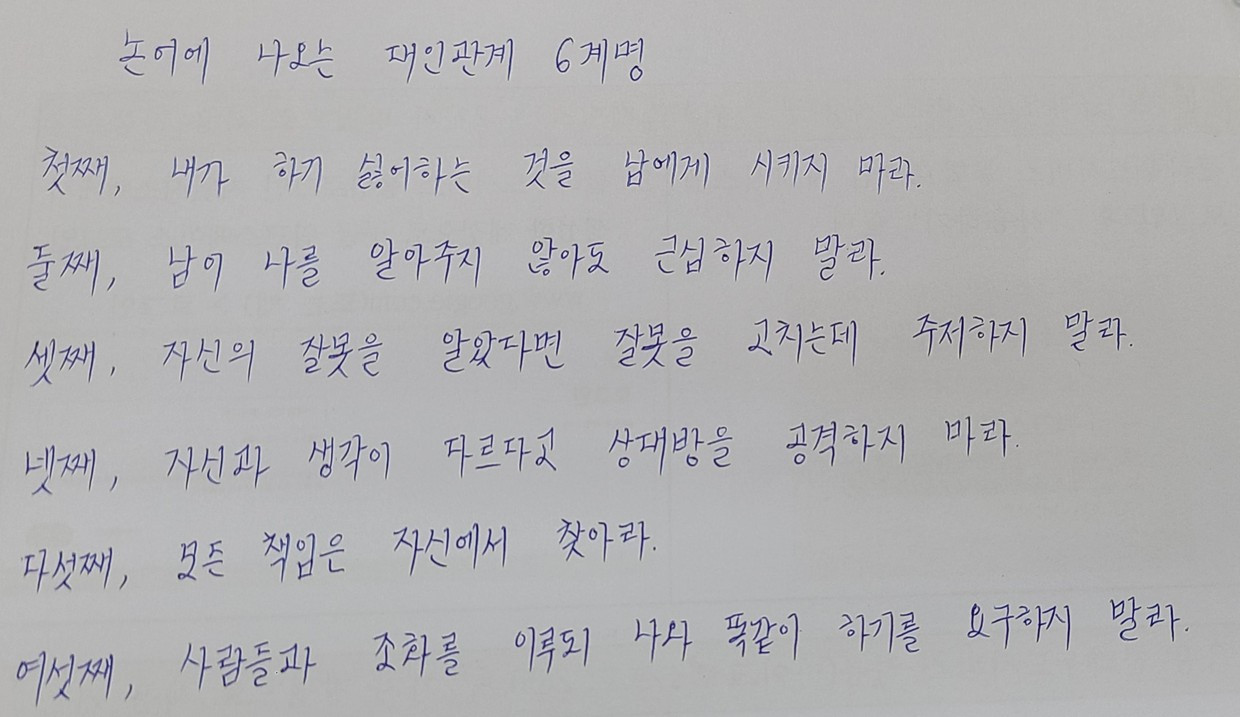 논어에 나오는 대인관계 6계명
첫째, 내가 하기 싫어하는 것을 남에게 시키지 마라.
둘째, 남이 나를 알아주지 않아도 근심하지 말라.
셋째, 자신의 잘못을 알았다면 잘못을 고치는데 주저하지 말라.
넷째, 자신과 생각이 다르다고 상대방을 공격하지 마라.
다섯째, 모든 책임은 자신에서 찾아라.
여섯째, 사람들과 조화를 이루되 나와 똑같이 하기를 요구하지 말라.